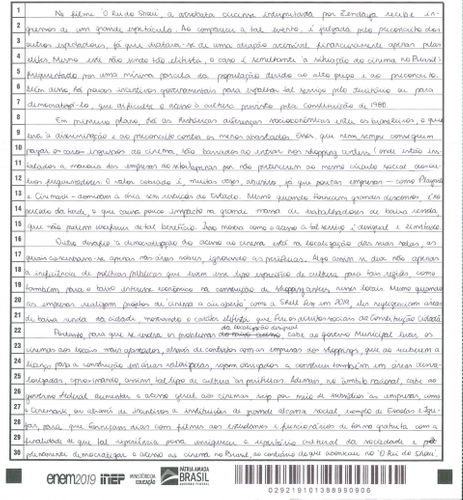 No filme 'O Rei do Show', a acrobata circense interpretada por Zendaya recebe in-
gressos de um grande espetáculo. Ao comparecer a tal evento, é julgada pelo preconceito dos
outros espectadores, já que tratava-se de uma atração acessível financeiramente apenas pelas
elites. Mesmo que não sendo tão elitista, o caso é semelhante à situação do cinema no Brasil:
frequentado por uma mínima parcela da população devido ao alto preço e ao preconceito.
Além disso, há poucos incentivos governamentais para espalhar tal serviço pelo território ou para
democratizá-lo, que dificulta o acesso à cultura previsto pela Constituição de 1988.
Em primeiro plano, há as históricas diferenças socioeconômicas entre os brasileiros, o que
gera a discriminação e o preconceito contra os menos abastados. Esses, que nem sempre conseguem
pagar os caros ingressos do cinema, são barrados ao entrar nos shopping centers (onde estão ins-
talados a maioria das empresas do setor) apenas por não pertencerem ao mesmo círculo social dos
seus frequentadores. O valor cobrado é, muitas vezes, abusivo, já que poucas empresas – como Playarte
e Cinemark – dominam a área sem restrições do Estado. Mesmo quando fornecem grandes descontos, é no
período da tarde, o que causa pouco impacto na grande massa de trabalhadores de baixa renda
que não podem usufruir de tal benefício. Isso mostra como o acesso a tal serviço é desigual e
Outro desafio à democratização do acesso ao cinema está na localização das suas salas, as
quais concentram-se apenas nas áreas nobres, ignorando as periferias. Algo assim se deve não apenas
à ineficiência de políticas públicas que levem esse tipo específico de cultura para tais regiões, como
também, para o baixo interesse econômico na construção de shopping centers nesses locais. Mesmo quando
as empresas realizam projetos de 'cinema a céu aberto', como a Shell fez em 2019, elas negligenciam áreas
de baixa renda da cidade, mostrando o caráter elitista que fere os direitos sociais da Constituição Cidadã.
da localização desigual
Portanto, para que se resolva os problemas cabe ao governo Municipal levar os
cinemas aos locais mais afastados, através de contratos com as empresas dos shoppings, que ao receberem a
licença para a construção em áreas valorizadas, sejam obrigados a construir também em áreas desva-
lorizadas, aproximando, assim, tal tipo de cultura às periferias. Ademais, no âmbito nacional, cabe ao
governo Federal aumentar o acesso geral ao cinema seja por meio de subsídios às empresas como
o Cinemark, ou através de incentivos a instituições de grande alcance social, exemplo de Escolas e Igre-
jas, para que forneçam dias com filmes aos estudantes e funcionários de forma gratuita com a
finalidade de que tal experiência possa enriquecer o repertório cultural da sociedade e
plenamente democratizar o acesso ao cinema no Brasil, ao contrário do que acontecia no 'O Rei do Show'.
1
2
3
4
5
6
7
8
9
10
11
12
13
14
15
16
17
18
19
20
21
22
23
24
25
26
27
28
29
30
enem2019 inep MINISTÉRIO DA EDUCAÇÃO PÁTRIA AMADA BRASIL GOVERNO FEDERAL
0292191013889909​06